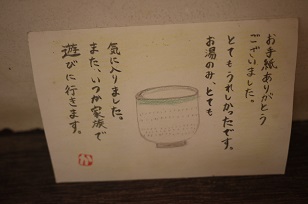 お手紙ありがとう
ございました。
とてもうれしかったです。
お湯のみ、とても
気に入りました。
また、いつか家族で
遊びに行きます。
か